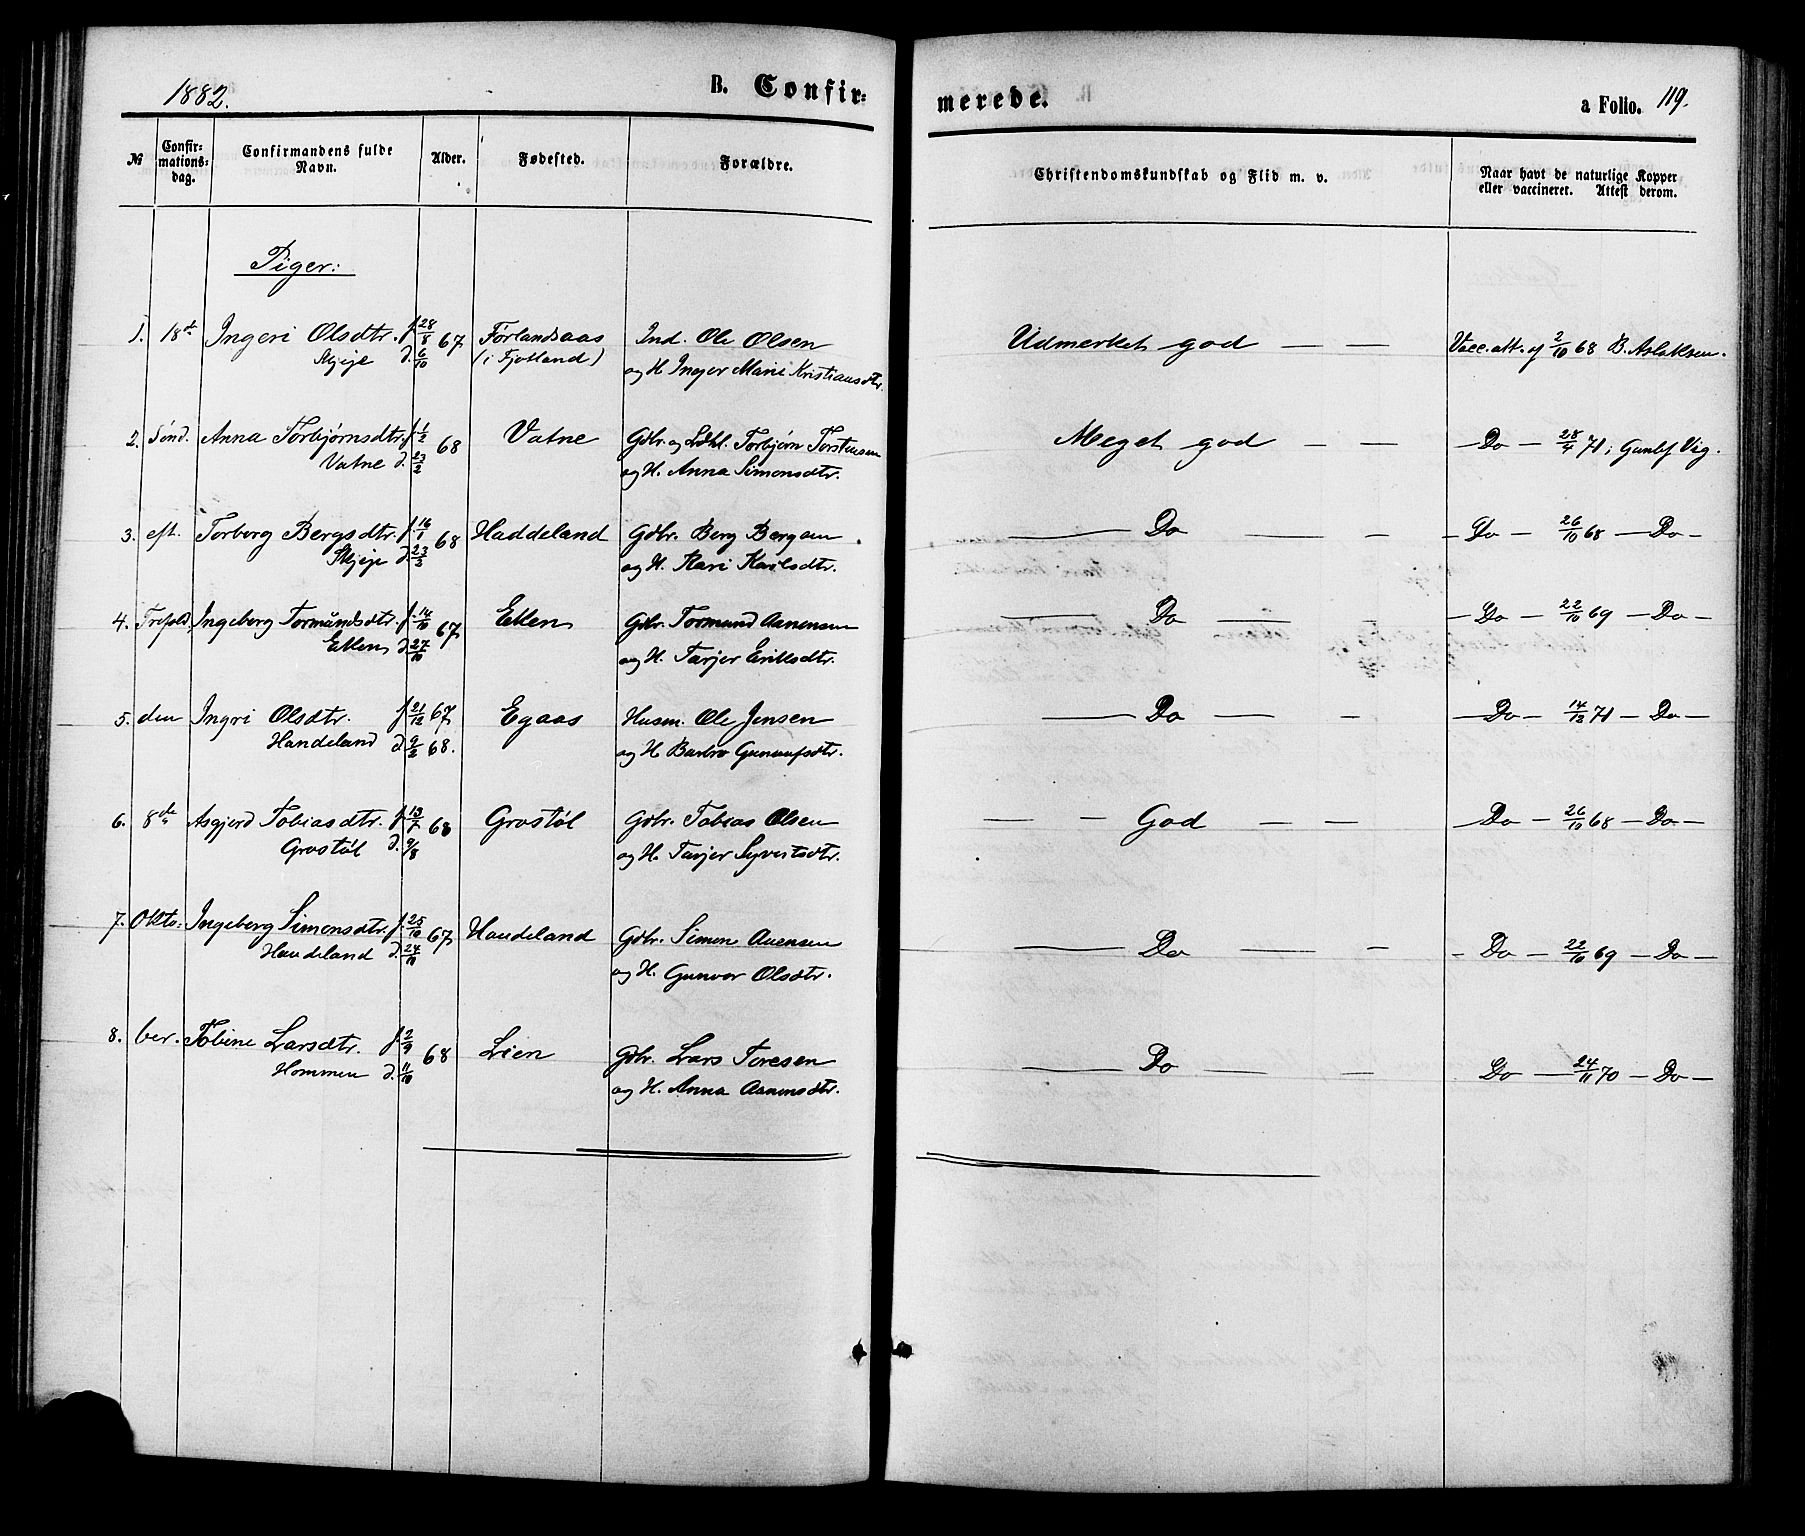 1882.
B. Confir=
merede.
a Folio. 119.
№
Confir=
mations=
dag.
Confirmandens fulde
Navn.
Alder.
Fødested.
Forældre.
Christendomskundskab og Flid m. v.
Naar havt de naturlige Kopper
eller vaccineret. Attest derom.
Piger:
1. 18de Ingeri Olsdtr. f. 28/8 67 Førlandsaas Ind. Ole Olsen Udmerket god — — Vacc. att. af 2/10 68 B. Aslaksen.
Skjeje d. 6/10 (i Fjotland) og H. Inger Marie Kristiansdtr.
2. Sønd. Anna Torbjørnsdtr. f. 1/2 68 Vatne Gdbr. og Ldhl. Torbjørn Torstensen Meget god — — — Do — 28/4 71; Gunlf Vig.
Vatne d. 23/2 og H. Anna Simonsdtr.
3. eft. Torborg Bergsdtr. f. 16/1 68 Haddeland Gdbr. Berg Bergsen — Do — — — Do — 26/10 68 — Do —
Skjeje d. 23/3 og H. Kari Karilsdtr.
4. Trefold. Ingeborg Tormundsdtr. f. 14/10 67 Etlen Gdbr. Tormund Aanensen — Do — — — Do — 22/10 69 — Do —
Etlen d. 27/10 og H. Tarjer Eriksdtr.
5. den Ingri Olsdtr. f. 21/12 67 Egaas Husm. Ole Jensen — Do — — — Do — 14/12 71 — Do —
Handeland d. 9/2 68. og H. Barbro Gunnufsdtr.
6. 8de Asgjerd Tobiasdtr. f. 13/7 68 Grostøl Gdbr. Tobias Olsen — — God — — — Do — 26/10 68 — Do —
Grostøl d. 9/8 og H. Tarjer Syvertsdtr.
7. Okto= Ingeborg Simonsdtr. f. 25/10 67 Haudeland Gdbr. Simon Aanensen — Do — — — Do — 22/10 69 — Do —
Haudeland d. 24/11 og H. Gunvor Olsdtr.
8. ber. Tobine Larsdtr. f. 2/9 68 Lien Gdbr. Lars Toresen — Do — — Do — 24/11 70 — Do —
Hommen d. 11/10 og H. Anna Aanensdtr.